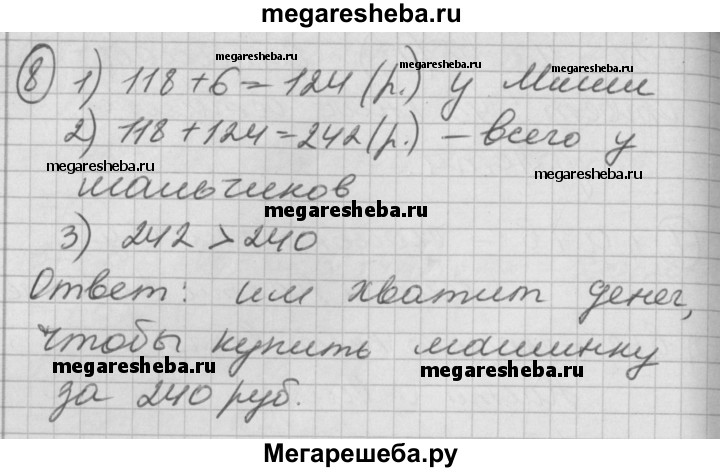 megaresheba.ru
8 1) 118 + 6 = 124 (р.) у Миши
megaresheba.ru megaresheba.ru megaresheba.ru
2) 118 + 124 = 242 (р.) – всего у
megaresheba.ru megaresheba.ru
мальчиков
megaresheba.ru
3) 242 > 240
Ответ: им хватит денег,
чтобы купить машинку
megaresheba.ru megaresheba.ru
за 240 руб.
Мегарешеба.ру